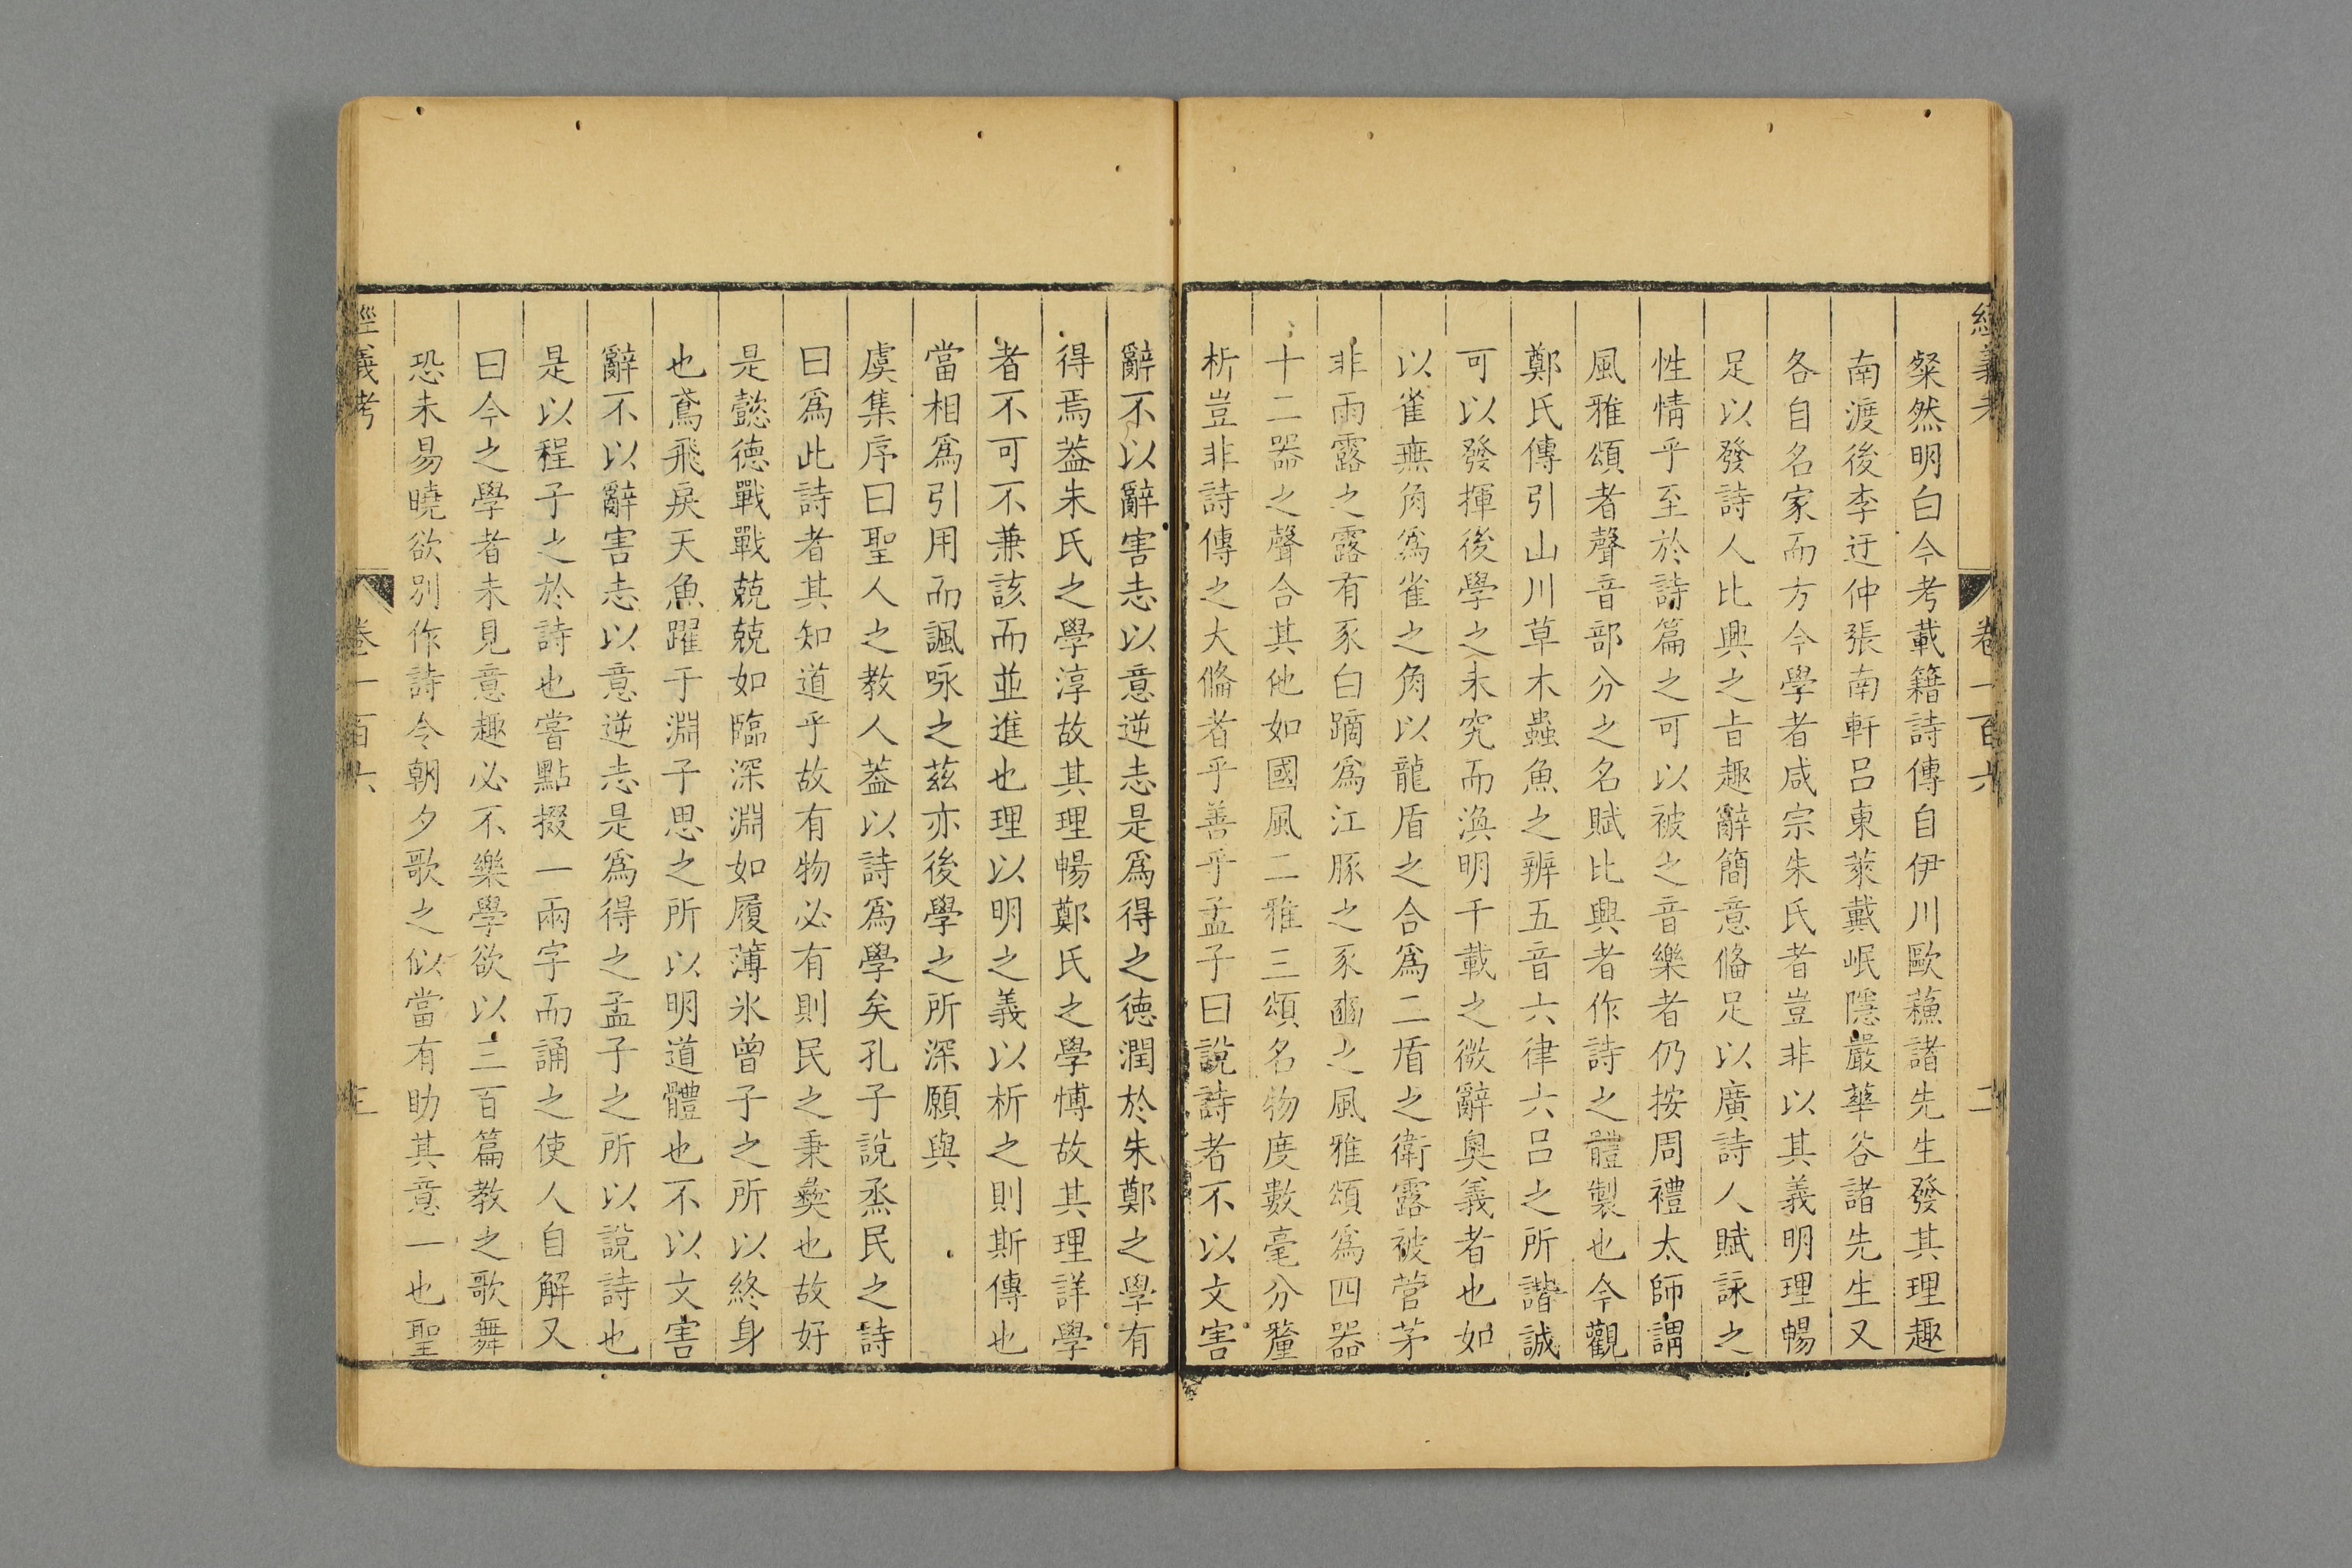 經義考 卷一百六 二
粲然明白今考載籍詩傳自伊川歐蘓諸先生發其理趣
南渡後李迂仲張南軒吕東萊戴岷隱嚴華谷諸先生又
各自名家而方今學者咸宗朱氏者豈非以其義明理暢
足以發詩人比興之㫖趣辭簡意俻足以廣詩人賦詠之
性情乎至於詩篇之可以被之音樂者仍按周禮太師謂
風雅頌者聲音部分之名賦比興者作詩之體製也今觀
鄭氏傳引山川草木蟲魚之辨五音六律六吕之所諧誠
可以發揮後學之未究而渙明千載之微辭奥義者也如
以雀無角爲雀之角以龍盾之合爲二盾之衛露被菅茅
非雨露之露有豕白蹢爲江豚之豕豳之風雅頌爲四器
十二器之聲合其他如國風二雅三頌名物度數毫分釐
析豈非詩傳之大俻者乎善乎孟子曰說詩者不以文害
辭不以辭害志以意逆志是爲得之徳潤於朱鄭之學有
得焉葢朱氏之學淳故其理暢鄭氏之學愽故其理詳學
者不可不兼該而並進也理以明之義以析之則斯傳也
當相爲引用而諷咏之兹亦後學之所深願與
虞集序曰聖人之教人葢以詩爲學矣孔子說烝民之詩
曰爲此詩者其知道乎故有物必有則民之秉彜也故好
是懿徳戰戰兢兢如臨深淵如履薄氷曾子之所以終身
也鳶飛戾天魚躍于淵子思之所以明道體也不以文害
辭不以辭害志以意逆志是爲得之孟子之所以說詩也
是以程子之於詩也嘗點掇一兩字而誦之使人自解又
曰今之學者未見意趣必不樂學欲以三百篇教之歌舞
恐未易曉欲别作詩令朝夕歌之似當有助其意一也聖
經義考 卷一百六 三